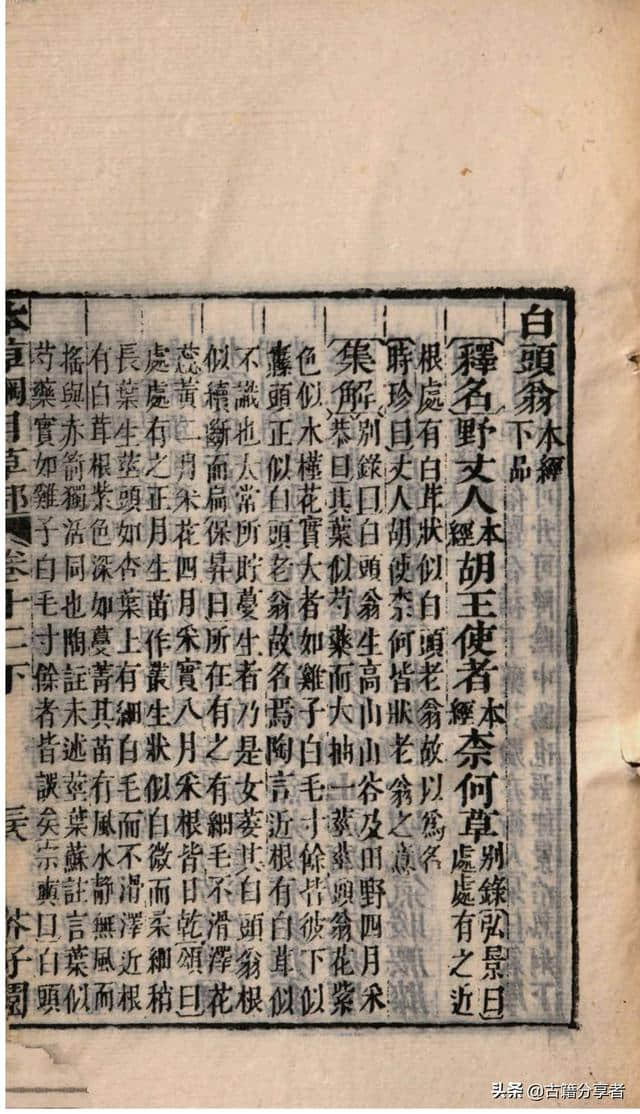 白頭翁本經下品
釋名野丈人本經胡王使者本經柰何草別錄弘景曰處處有之近
根處有白茸狀似白頭老翁故以爲名
時珍曰丈人胡使柰何皆狀老翁之意
集解別錄曰白頭翁生高山山谷及田野四月采恭曰其葉似芍藥而大抽一莖莖頭翁花紫
色似水槿花實大者如雞子白毛寸餘皆彼下似
纛頭正似白頭老翁故名焉陶言近根有白茸似
不識也太常所貯蔓生者乃是女萎其白頭翁根
似續斷而扁保昇曰所在有之有細毛不滑澤花
蕊黃二月采花四月采實八月采根皆日乾頌曰
處處有之正月生苗作叢生狀似白微而柔細稍
長葉生莖頭如杏葉上有細白毛而不滑澤近根
有白茸根紫色深如蔓菁其苗有風水靜無風而
搖與赤箭獨活同也陶註未述莖葉蘇註言葉似
芍藥實如雞子白毛寸餘者皆誤矣宗奭曰白頭
本草綱目草部 卷十二下 芥子園
头条 @古籍分享者